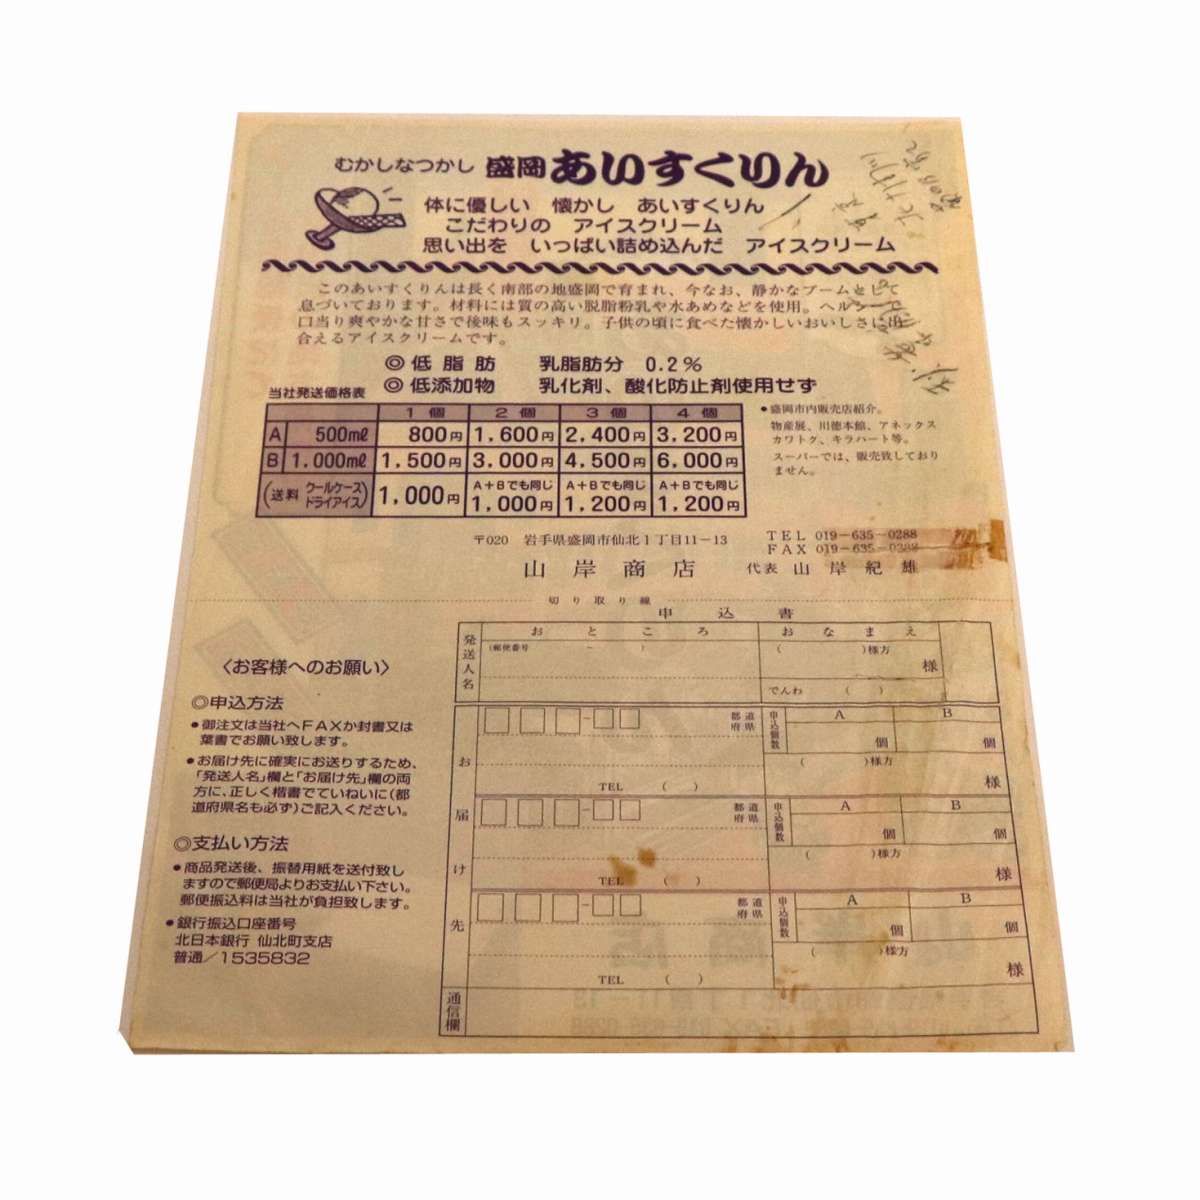 むかしなつかし 盛岡あいすくりん
体に優しい 懐かし あいすくりん
こだわりの アイスクリーム
思い出を いっぱい詰め込んだ アイスクリーム
このあいすくりんは長く南部の地盛岡で育まれ、今なお、静かなブームとして
息づいております。材料には質の高い脱脂粉乳や水あめなどを使用。ヘルシーで
口当り爽やかな甘さで後味もスッキリ。子供の頃に食べた懐かしいおいしさに出
合えるアイスクリームです。
◎低脂肪 乳脂肪分 0.2%
◎低添加物 乳化剤、酸化防止剤使用せず
当社発送価格表
1個 2個 3個 4個
A 500mℓ 800円 1,600円 2,400円 3,200円
B 1.000mℓ 1,500円 3.000円 4,500円 6,000円
(送料 クールケース ドライアイス) 1,000円 A+Bでも同じ 1,000円 A+Bでも同じ 1,200円 A+Bでも同じ 1,200円
●盛岡市内販売店紹介。
物産展、川徳本館、アネックス
カワトク、キラハート等。
スーパーでは、販売致しており
ません。
〒020 岩手県盛岡市仙北1丁目11-13
TEL 019-635-0288
FAX 019-635-0288
山岸商店 代表 山岸紀雄
切り取り線
申込書
発送人名
おところ
おなまえ
(郵便番号 - )
( )様方
様
でんわ ( )
お届け先
都道府県
申込個数
A B
個 個
( )様方
様
TEL ( )
都道府県
申込個数
A B
個 個
( )様方
様
TEL ( )
都道府県
申込個数
A B
個 個
( )様方
様
TEL ( )
通信欄
〈お客様へのお願い〉
◎申込方法
●御注文は当社へFAXか封書又は
葉書でお願い致します。
●お届け先に確実にお送りするため、
「発送人名」欄と「お届け先」欄の両
方に、正しく楷書でていねいに(都
道府県名も必ず)ご記入ください。
◎支払い方法
●商品発送後、振替用紙を送付致し
ますので郵便局よりお支払い下さい。
郵便振込料は当社が負担致します。
●銀行振込口座番号
北日本銀行 仙北町支店
普通/1535832